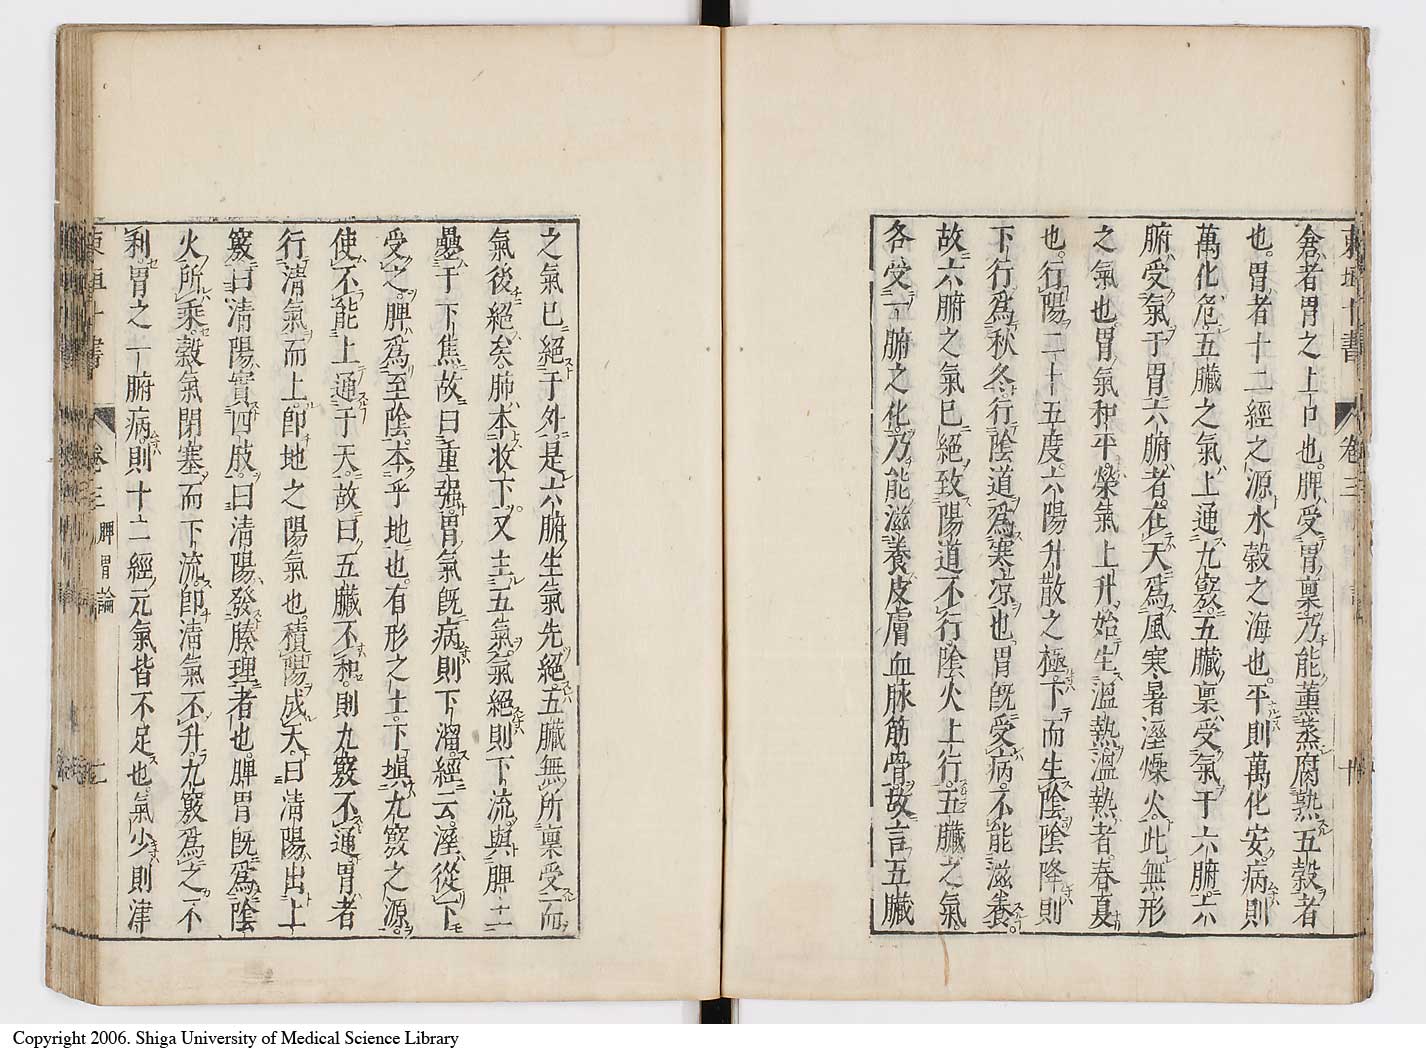 東垣十書
卷三
十
倉者胃之上口也。脾受胃稟乃能薰蒸腐熟五穀者
也。胃者十二經之源水穀之海也。平則萬化安。病則
萬化危。五臟之氣上通九竅。五臟稟受氣于六腑。六
腑受氣于胃。六腑者。在天爲風寒暑溼燥火。此無形
之氣也。胃氣和平榮氣上升始生溫熱溫熱者。春夏
也。行陽二十五度。六陽升散之極。下而生陰陰降則
下行爲秋冬。行陰道爲寒凉也。胃旣受病。不能滋養。
故六腑之氣已絕。致陽道不行。陰火上行。五臟之氣。
各受一腑之化。乃能滋養皮膚血脉筋骨。故言五臟
之氣已絕于外。是六腑生氣先絕。五臟無所稟受而
氣後絕矣。肺本收下。又主五氣。氣絕則下流。與脾土
疊于下焦。故曰重強。胃氣旣病則下溜。經云。溼從下
受之。脾爲至陰。本乎地也。有形之土。下塡九竅之源。
使不能上通于天。故曰五臟不和。則九竅不通。胃者
行清氣而上。卽地之陽氣也。積陽成天。曰清陽出上
竅。曰清陽實四肢。曰清陽發腠理者也。脾胃旣爲陰
火所乘。穀氣閉塞而下流。卽清氣不升。九竅爲之不
利。胃之一腑病。則十二經元氣皆不足也。氣少則津
東垣十書
卷三 脾胃論
Copyright 2006. Shiga University of Medical Science Library